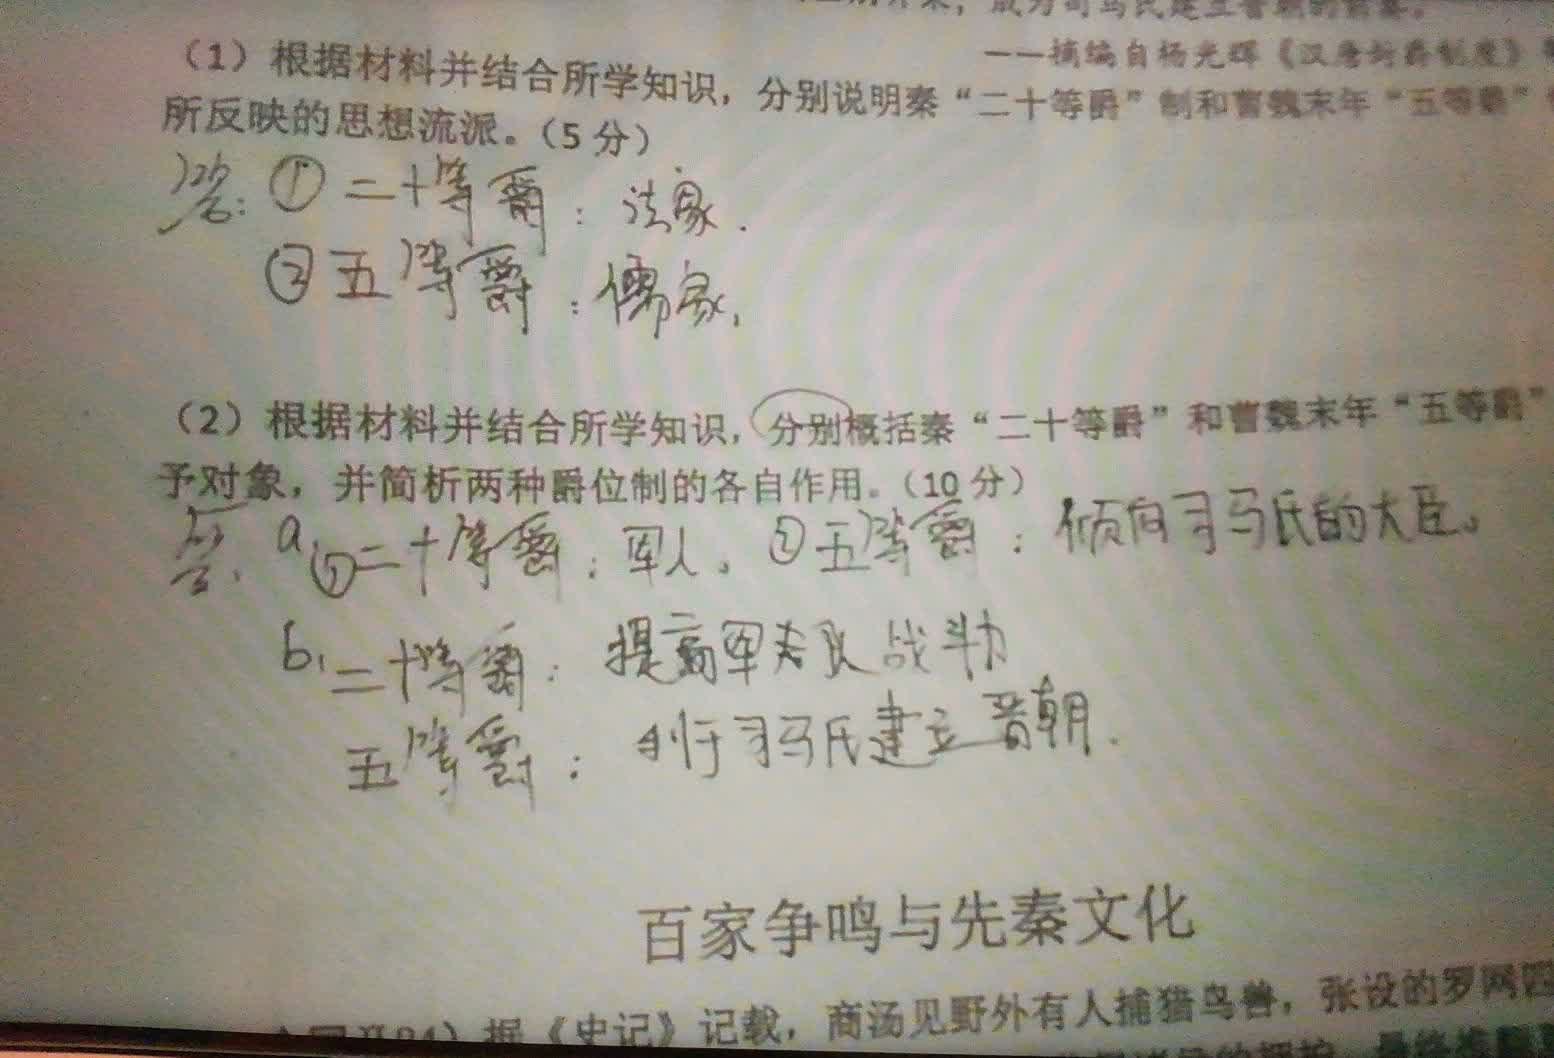 成为司马氏建立晋朝的前奏。
——摘编自杨光辉《汉唐封爵制度》
（1）根据材料并结合所学知识，分别说明秦“二十等爵”制和曹魏末年“五等爵”
所反映的思想流派。（5分）
答：①二十等爵：法家．
②五等爵：儒家，
（2）根据材料并结合所学知识，分别概括秦“二十等爵”和曹魏末年“五等爵”
予对象，并简析两种爵位制的各自作用。（10分）
答. a.①二十等爵：军人。②五等爵：倾向司马氏的大臣。
b.二十等爵：提高军队战斗力
五等爵：利于司马氏建立晋朝．
百家争鸣与先秦文化
据《史记》记载，商汤见野外有人捕猎鸟兽，张设的罗网四